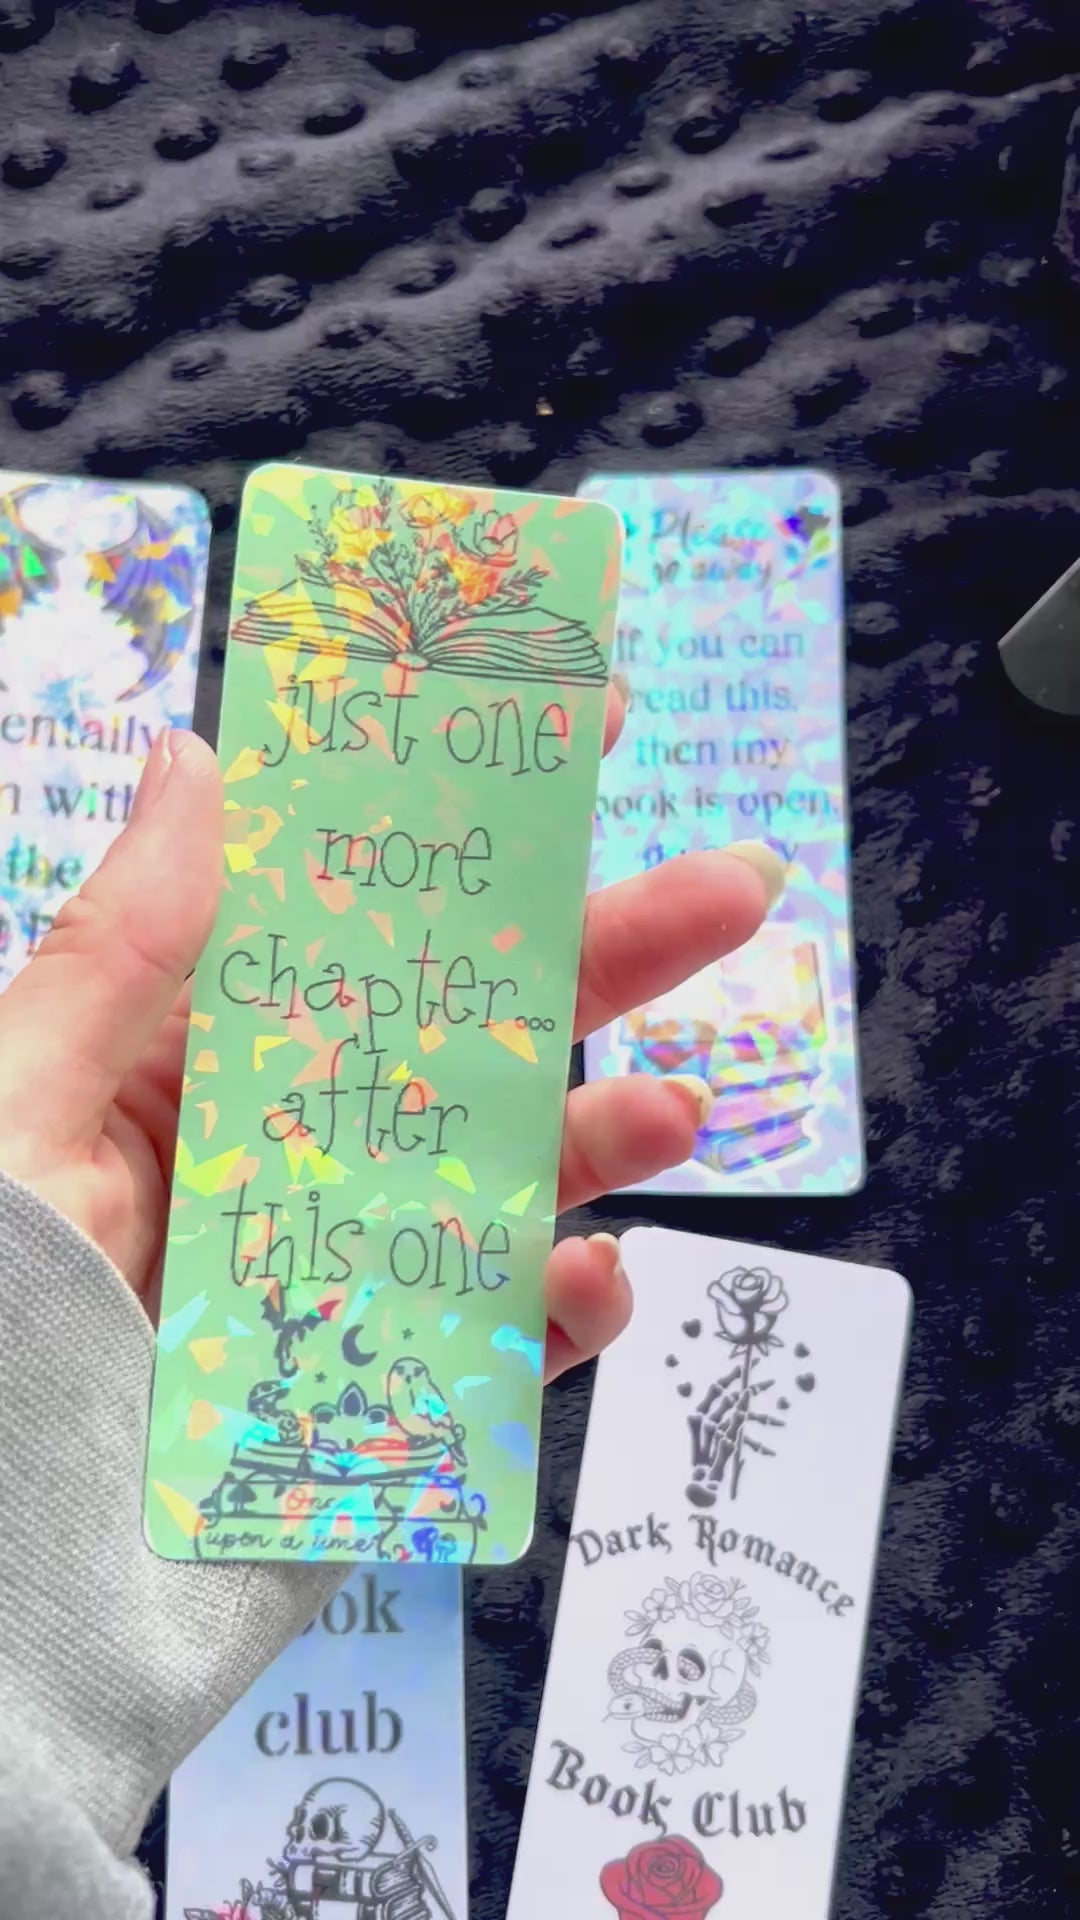 just one
more
chapter...
after
this one
Once
upon a time
Please
go away
If you can
read this,
then my
book is open.
entally
with
the
ook
club
Dark Romance
Book Club